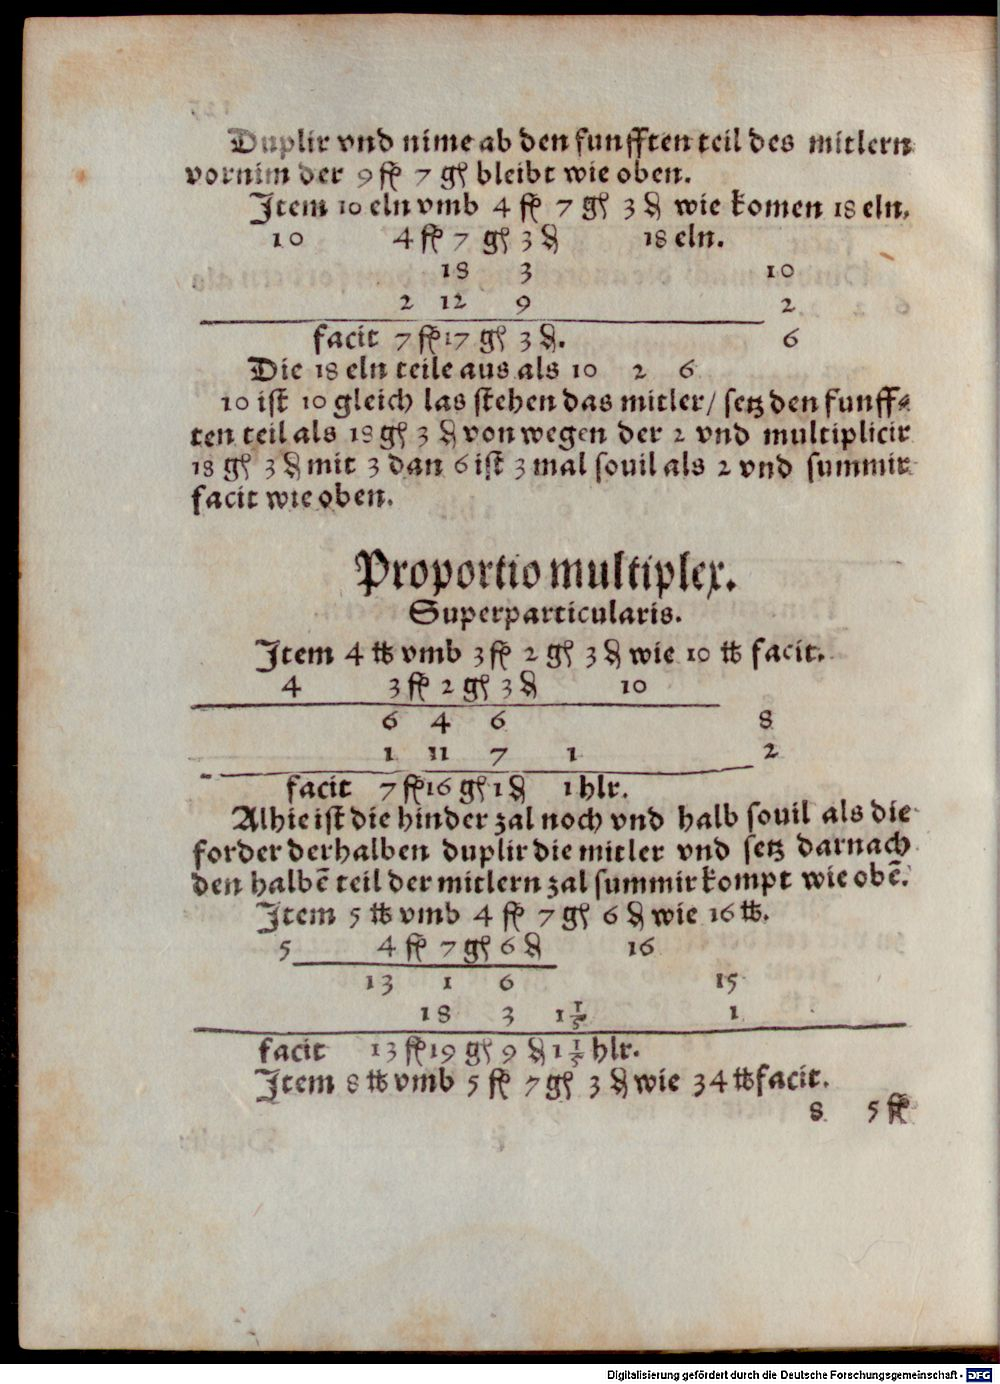 Duplir vnd nime ab den funfften teil des mitlern
vornim der 9 fl 7 gl bleibt wie oben.
Item 10 eln vmb 4 fl 7 gl 3 ₰ wie komen 18 eln.
10 4 fl 7 gl 3 ₰ 18 eln.
18 3 10
2 12 9 2
facit 7 fl 17 gl 3 ₰. 6
Die 18 eln teile aus als 10 2 6
10 ist 10 gleich las stehen das mitler/ setz den funff⸗
ten teil als 18 gl 3 ₰ von wegen der 2 vnd multiplicir
18 gl 3 ₰ mit 3 dan 6 ist 3 mal souil als 2 vnd summir
facit wie oben.
Proportio multiplex.
Superparticularis.
Item 4 ℔ vmb 3 fl 2 gl 3 ₰ wie 10 ℔ facit.
4 3 fl 2 gl 3 ₰ 10
6 4 6 8
1 11 7 1 2
facit 7 fl 16 gl 1 ₰ 1 hlr.
Alhie ist die hinder zal noch vnd halb souil als die
forder derhalben duplir die mitler vnd setz darnach
den halbē teil der mitlern zal summir kompt wie obē.
Item 5 ℔ vmb 4 fl 7 gl 6 ₰ wie 16 ℔.
5 4 fl 7 gl 6 ₰ 16
13 1 6 15
18 3 1 1/5 1
facit 13 fl 19 gl 9 ₰ 1 1/5 hlr.
Item 8 ℔ vmb 5 fl 7 gl 3 ₰ wie 34 ℔ facit.
8 5 fl
Digitalisierung gefördert durch die Deutsche Forschungsgemeinschaft - DFG